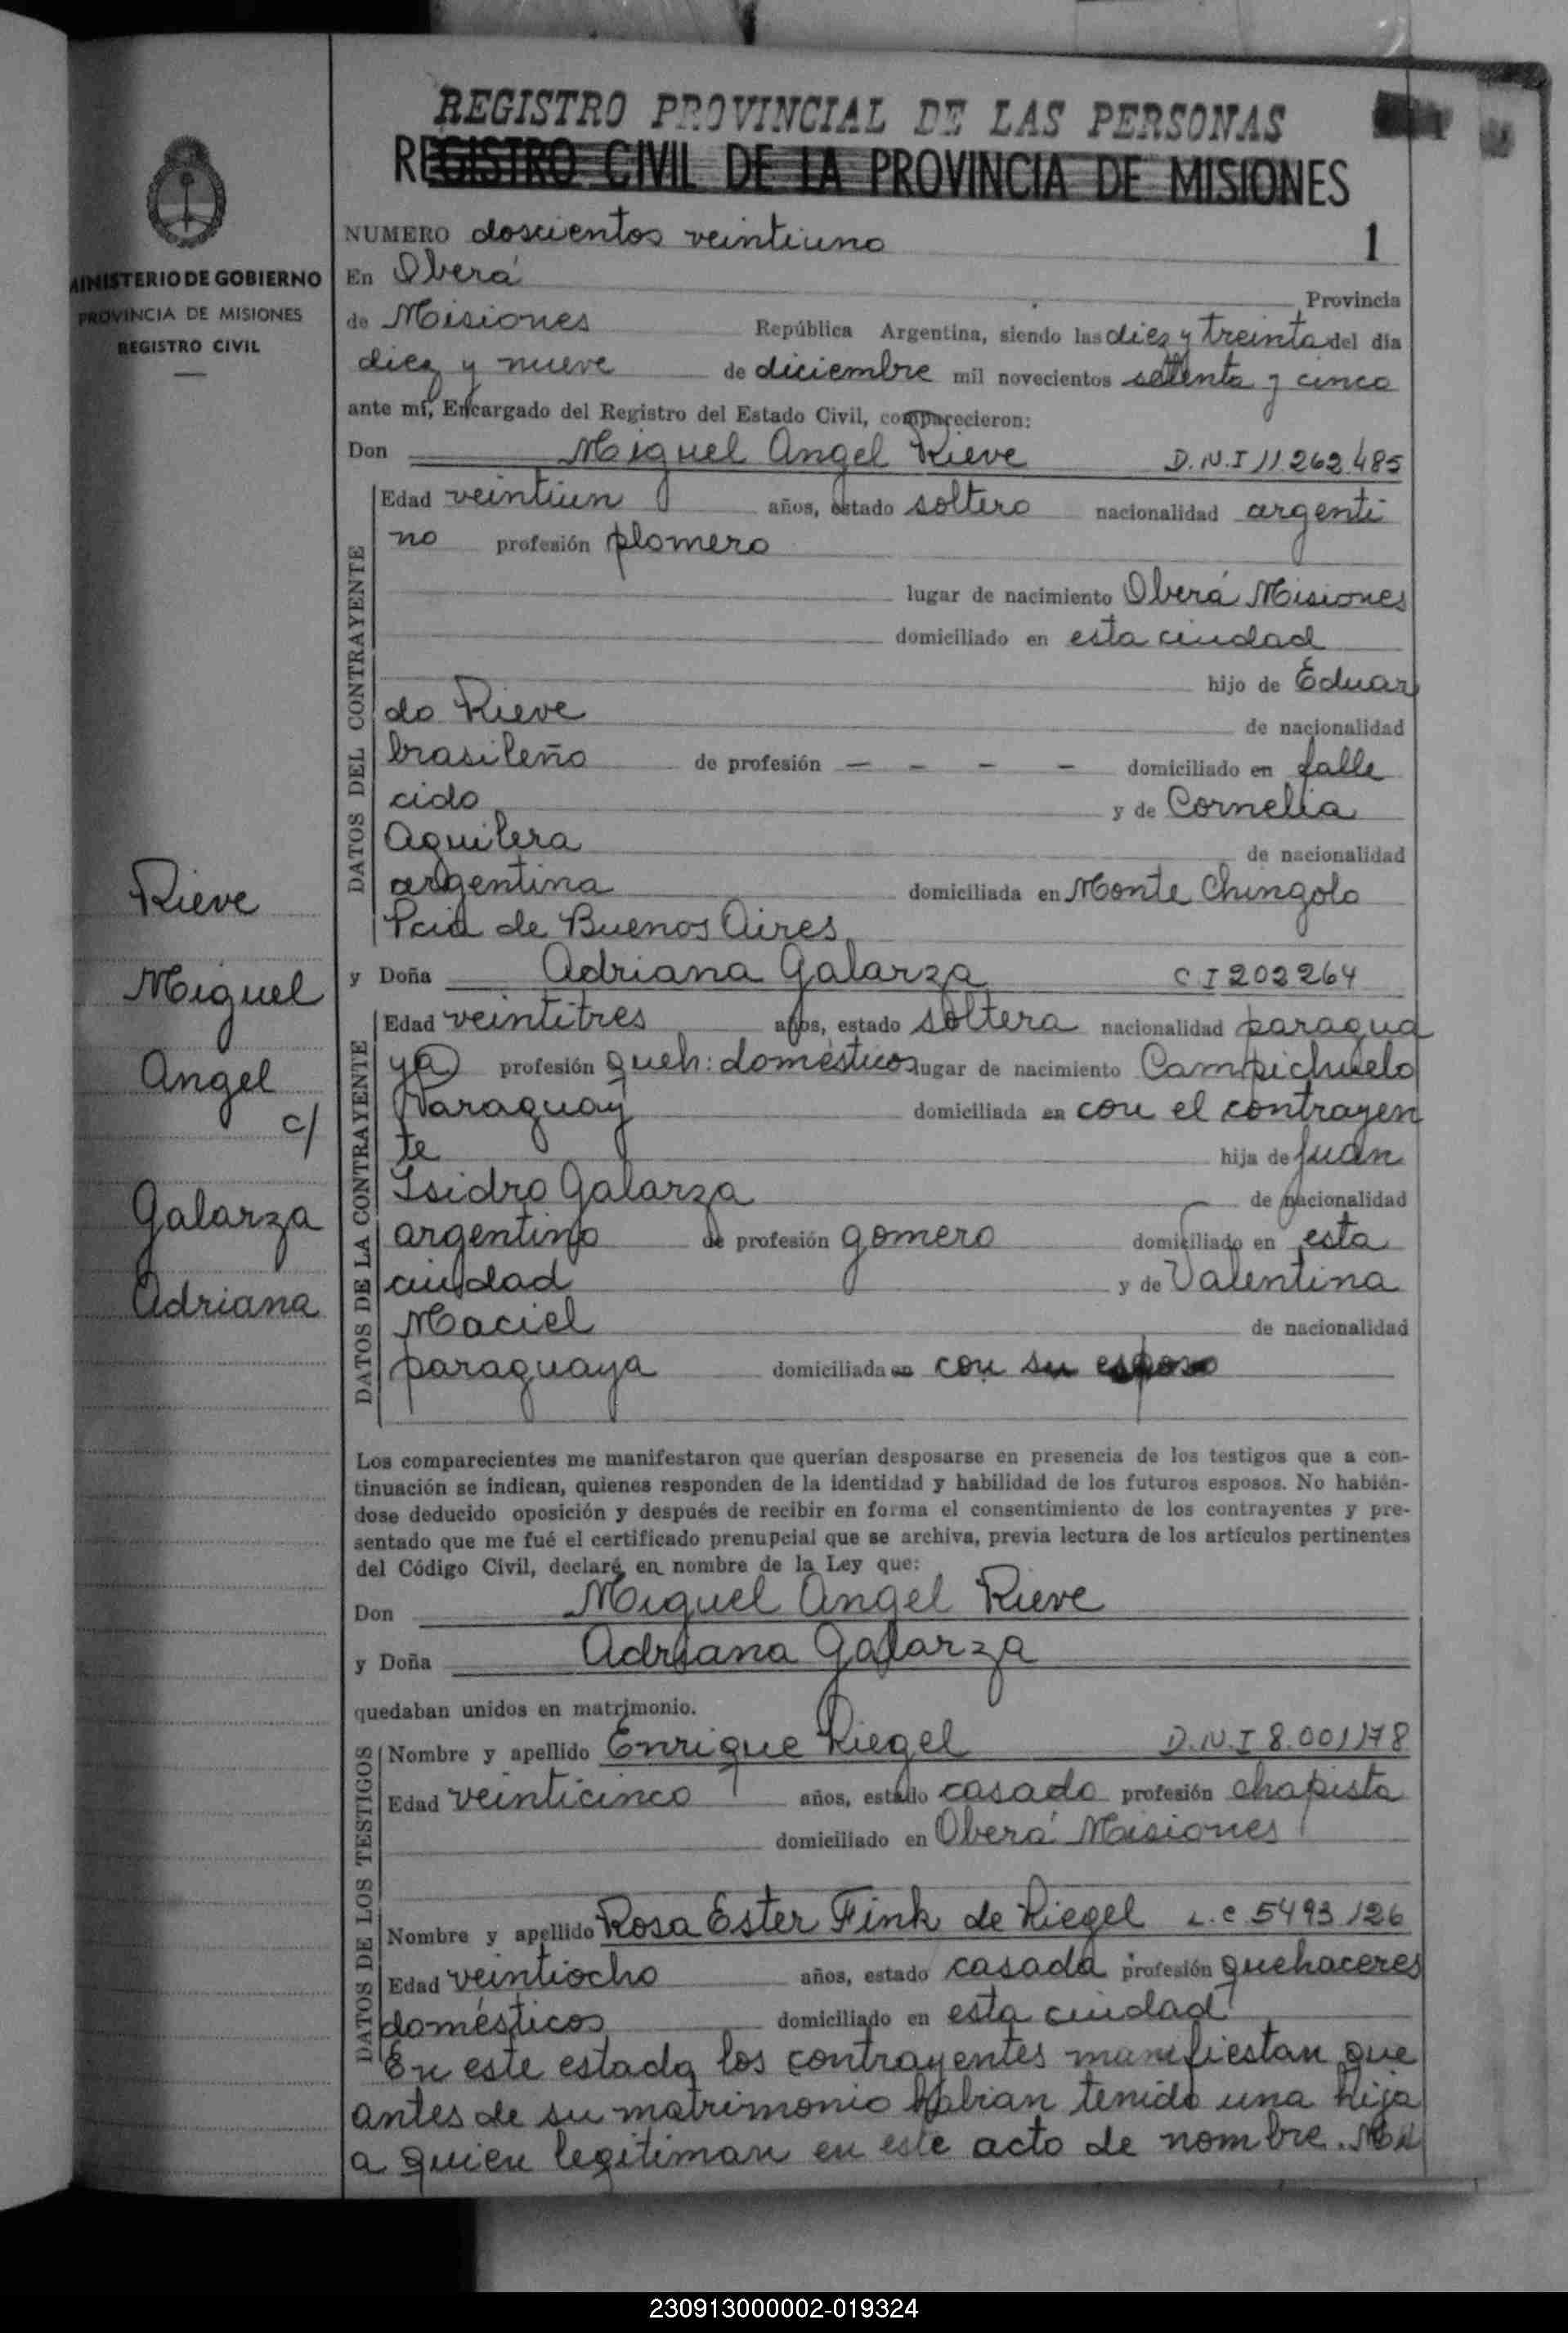 REGISTRO PROVINCIAL DE LAS PERSONAS
REGISTRO CIVIL DE LA PROVINCIA DE MISIONES
MINISTERIO DE GOBIERNO
PROVINCIA DE MISIONES
REGISTRO CIVIL
NUMERO doscientos veintiuno 1
En Oberá Provincia
de Misiones República Argentina, siendo las diez y treinta del día
diez y nueve de diciembre mil novecientos setenta y cinco
ante mí, Encargado del Registro del Estado Civil, comparecieron:
Don Miguel Angel Rieve D.N.I 11262.485
DATOS DEL CONTRAYENTE
Edad veintiun años, estado soltero nacionalidad argenti
no profesión plomero
lugar de nacimiento Oberá Misiones
domiciliado en esta ciudad
hijo de Eduar
do Rieve de nacionalidad
brasileño de profesión - - - - domiciliado en falle
cido y de Cornelia
Aquilera de nacionalidad
argentina domiciliada en Monte Chingolo
Pcia de Buenos Aires
y Doña Adriana Galarza C I 202264
DATOS DE LA CONTRAYENTE
Edad veintitres años, estado soltera nacionalidad paragua
ya profesión queh: domésticos lugar de nacimiento Campichuelo
Paraguay domiciliada en con el contrayen
te hija de Juan
Isidro Galarza de nacionalidad
argentino de profesión gomero domiciliado en esta
ciudad y de Valentina
Maciel de nacionalidad
paraguaya domiciliada en con su esposo
Rieve
Miguel
Angel
c/
Galarza
Adriana
Los comparecientes me manifestaron que querían desposarse en presencia de los testigos que a con-
tinuación se indican, quienes responden de la identidad y habilidad de los futuros esposos. No habién-
dose deducido oposición y después de recibir en forma el consentimiento de los contrayentes y pre-
sentado que me fué el certificado prenupcial que se archiva, previa lectura de los artículos pertinentes
del Código Civil, declaré en nombre de la Ley que:
Don Miguel Angel Rieve
y Doña Adriana Galarza
quedaban unidos en matrimonio.
DATOS DE LOS TESTIGOS
Nombre y apellido Enrique Riegel D.N.I 8.001178
Edad veinticinco años, estado casado profesión chapista
domiciliado en Oberá Misiones
Nombre y apellido Rosa Ester Fink de Riegel L.C 5493126
Edad veintiocho años, estado casada profesión quehaceres
domésticos domiciliado en esta ciudad
En este estado los contrayentes manifiestan que
antes de su matrimonio habian tenido una hija
a quien legitiman en este acto de nombre
230913000002-019324